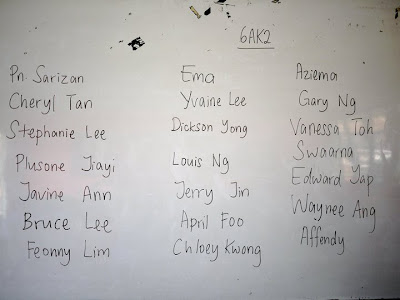 6AK2
Pn. Sarizan
Cheryl Tan
Stephanie Lee
Plusone Jiayi
Javine Ann
Bruce Lee
Feonny Lim
Ema
Yvaine Lee
Dickson Yong
Louis Ng
Jerry Jin
April Foo
Chloey Kwong
Aziema
Gary Ng
Vanessa Toh
Swaarna
Edward Yap
Waynee Ang
Affendy